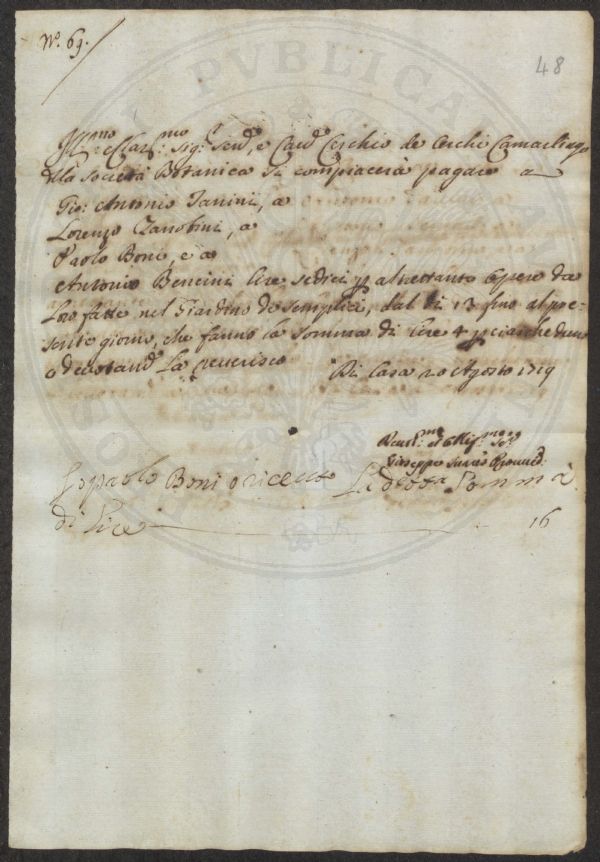 N.º 69.
48
Ill.mo e Clar.mo Sig.r Send.e, e Cav.e Cerchio de Cerchi Camarlingo
della Società Botanica si compiacerà pagare a
Gio: Antonio Janini, a
Lorenzo Zanobini, a
Paolo Boni, e a
Antonio Bencini lire sedici p altrettante Opere da
Loro fatte nel Giardino de Semplici, dal dì 13 fino al pre-
sente giorno, che fanno la Somma di lire 4 p ciascheduno
La reverisco Di Casa 20 Agosto 1719
Giuseppe
Io paolo Boni o riceuto La detta Somma
di lire 16
PVBLICA